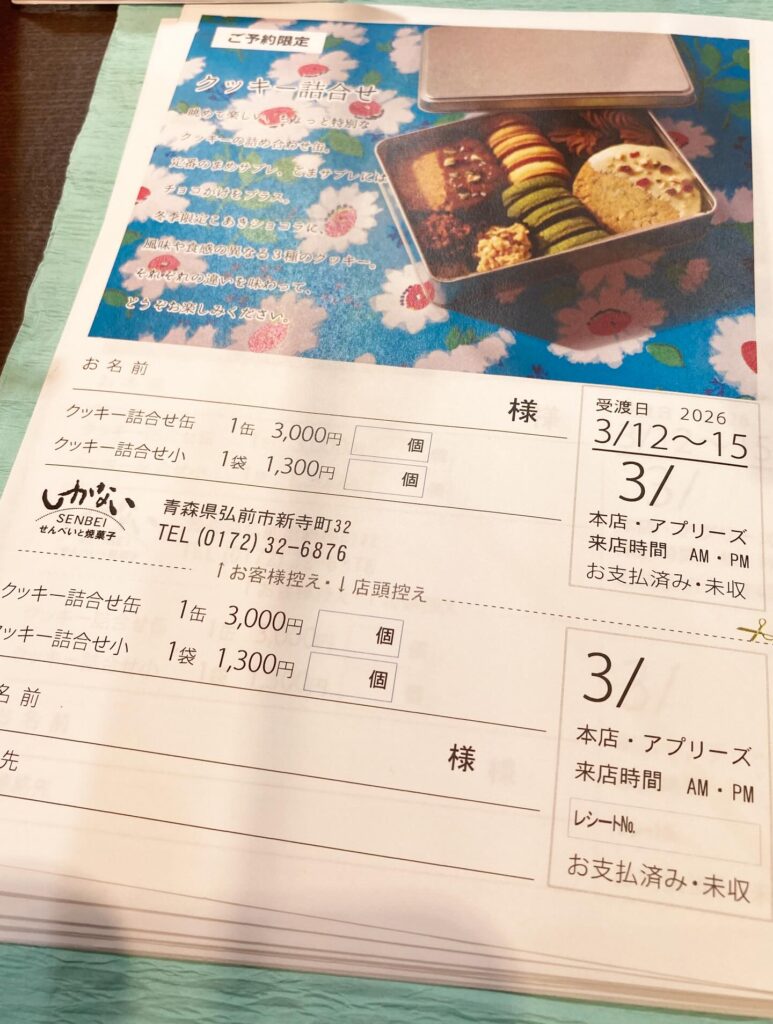 ご予約限定
クッキー詰合せ
眺めて楽しい、ちょっと特別な
クッキーの詰め合わせ缶。
定番のまめサブレ、ごまサブレには
チョコがけをプラス。
冬季限定こあきショコラに、
風味や食感の異なる3種のクッキー。
それぞれの違いを味わって、
どうぞお楽しみください。
お名前
様
クッキー詰合せ缶 1缶 3,000円 個
クッキー詰合せ小 1袋 1,300円 個
受渡日 2026
3/12〜15
3/
本店・アプリーズ
来店時間 AM・PM
お支払済み・未収
しかない
SENBEI
せんべいと焼菓子
青森県弘前市新寺町32
TEL (0172) 32-6876
↑お客様控え・↓店頭控え
クッキー詰合せ缶 1缶 3,000円 個
クッキー詰合せ小 1袋 1,300円 個
名前
様
先
3/
本店・アプリーズ
来店時間 AM・PM
レシートNo.
お支払済み・未収